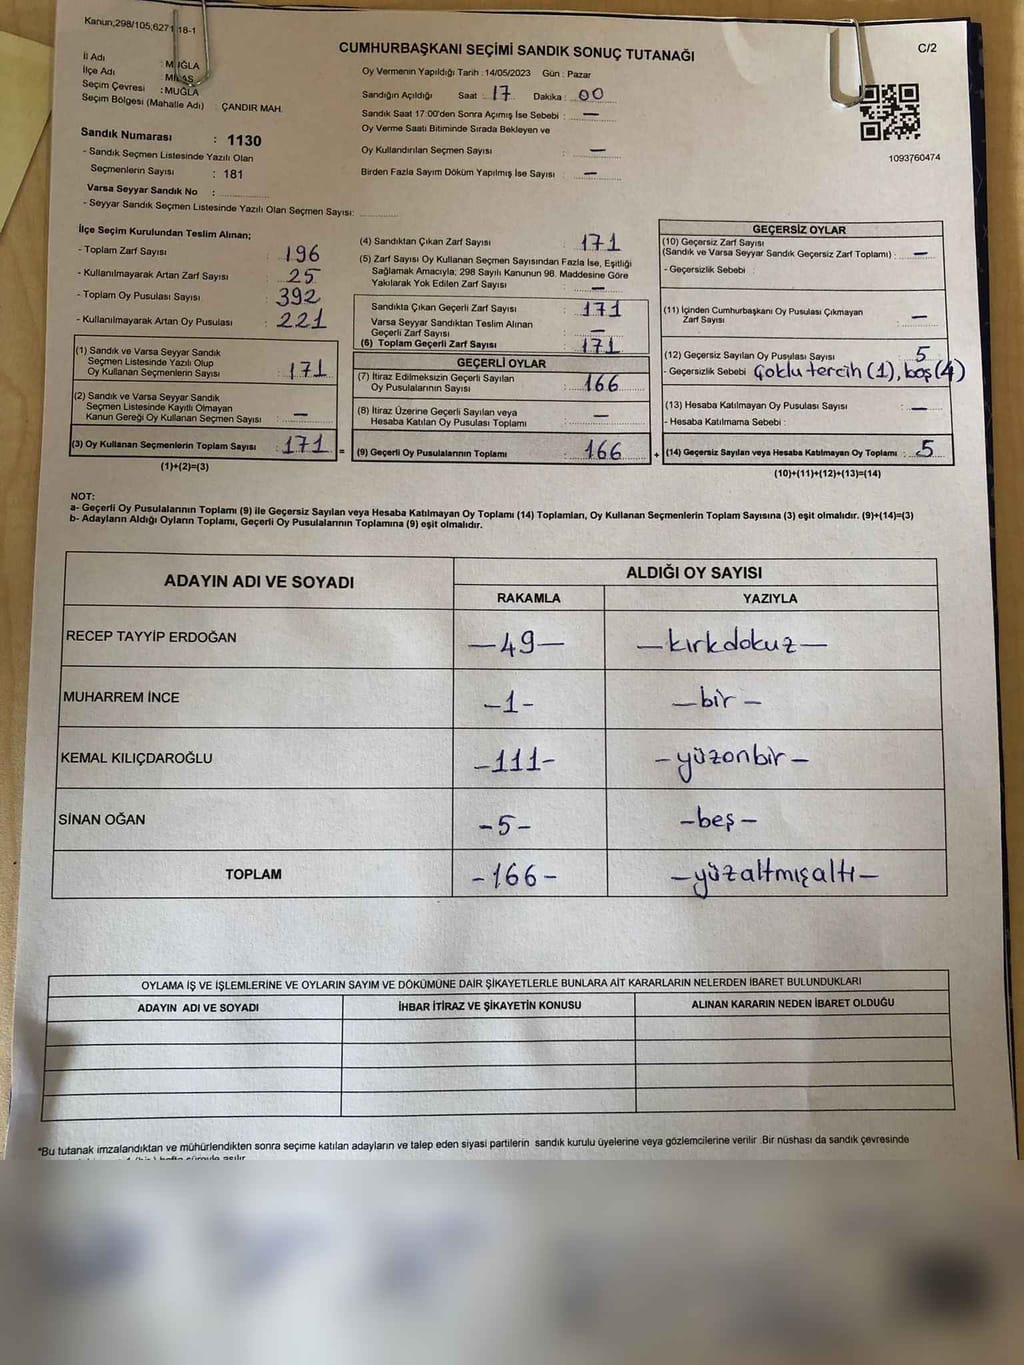 Kanun,298/105,6271 18-1
C/2
CUMHURBAŞKANI SEÇİMİ SANDIK SONUÇ TUTANAĞI
İl Adı : MUĞLA
İlçe Adı : MİLAS
Seçim Çevresi : MUĞLA
Seçim Bölgesi (Mahalle Adı) : ÇANDIR MAH.
Sandık Numarası : 1130
- Sandık Seçmen Listesinde Yazılı Olan
Seçmenlerin Sayısı : 181
Varsa Seyyar Sandık No :
- Seyyar Sandık Seçmen Listesinde Yazılı Olan Seçmen Sayısı:
Oy Vermenin Yapıldığı Tarih : 14/05/2023 Gün : Pazar
Sandığın Açıldığı Saat : 17 Dakika : 00
Sandık Saat 17:00'den Sonra Açımış İse Sebebi : —
Oy Verme Saati Bitiminde Sırada Bekleyen ve
Oy Kullandırılan Seçmen Sayısı : —
Birden Fazla Sayım Döküm Yapılmış İse Sayısı : —
1093760474
İlçe Seçim Kurulundan Teslim Alınan;
- Toplam Zarf Sayısı : 196
- Kullanılmayarak Artan Zarf Sayısı : 25
- Toplam Oy Pusulası Sayısı : 392
- Kullanılmayarak Artan Oy Pusulası : 221
(1) Sandık ve Varsa Seyyar Sandık
Seçmen Listesinde Yazılı Olup
Oy Kullanan Seçmenlerin Sayısı : 171
(2) Sandık ve Varsa Seyyar Sandık
Seçmen Listesinde Kayıtlı Olmayan
Kanun Gereği Oy Kullanan Seçmen Sayısı : —
(3) Oy Kullanan Seçmenlerin Toplam Sayısı : 171 =
(1)+(2)=(3)
(4) Sandıktan Çıkan Zarf Sayısı : 171
(5) Zarf Sayısı Oy Kullanan Seçmen Sayısından Fazla İse, Eşitliği
Sağlamak Amacıyla; 298 Sayılı Kanunun 98. Maddesine Göre
Yakılarak Yok Edilen Zarf Sayısı : —
Sandıkta Çıkan Geçerli Zarf Sayısı : 171
Varsa Seyyar Sandıktan Teslim Alınan
Geçerli Zarf Sayısı : —
(6) Toplam Geçerli Zarf Sayısı : 171
GEÇERLİ OYLAR
(7) İtiraz Edilmeksizin Geçerli Sayılan
Oy Pusulalarının Sayısı : 166
(8) İtiraz Üzerine Geçerli Sayılan veya
Hesaba Katılan Oy Pusulası Toplamı : —
(9) Geçerli Oy Pusulalarının Toplamı : 166 +
GEÇERSİZ OYLAR
(10) Geçersiz Zarf Sayısı
(Sandık ve Varsa Seyyar Sandık Geçersiz Zarf Toplamı) : —
- Geçersizlik Sebebi :
(11) İçinden Cumhurbaşkanı Oy Pusulası Çıkmayan
Zarf Sayısı : —
(12) Geçersiz Sayılan Oy Pusulası Sayısı : 5
- Geçersizlik Sebebi Çoklu tercih (1), boş (4)
(13) Hesaba Katılmayan Oy Pusulası Sayısı : —
- Hesaba Katılmama Sebebi :
(14) Geçersiz Sayılan veya Hesaba Katılmayan Oy Toplamı : 5
(10)+(11)+(12)+(13)=(14)
NOT:
a- Geçerli Oy Pusulalarının Toplamı (9) ile Geçersiz Sayılan veya Hesaba Katılmayan Oy Toplamı (14) Toplamları, Oy Kullanan Seçmenlerin Toplam Sayısına (3) eşit olmalıdır. (9)+(14)=(3)
b- Adayların Aldığı Oyların Toplamı, Geçerli Oy Pusulalarının Toplamına (9) eşit olmalıdır.
ADAYIN ADI VE SOYADI
ALDIĞI OY SAYISI
RAKAMLA YAZIYLA
RECEP TAYYİP ERDOĞAN —49— —kırkdokuz—
MUHARREM İNCE —1— —bir—
KEMAL KILIÇDAROĞLU —111— —yüzonbir—
SİNAN OĞAN —5— —beş—
TOPLAM —166— —yüzaltmışaltı—
OYLAMA İŞ VE İŞLEMLERİNE VE OYLARIN SAYIM VE DÖKÜMÜNE DAİR ŞİKAYETLERLE BUNLARA AİT KARARLARIN NELERDEN İBARET BULUNDUKLARI
ADAYIN ADI VE SOYADI İHBAR İTİRAZ VE ŞİKAYETİN KONUSU ALINAN KARARIN NEDEN İBARET OLDUĞU
*Bu tutanak imzalandıktan ve mühürlendikten sonra seçime katılan adayların ve talep eden siyasi partilerin sandık kurulu üyelerine veya gözlemcilerine verilir .Bir nüshası da sandık çevresinde